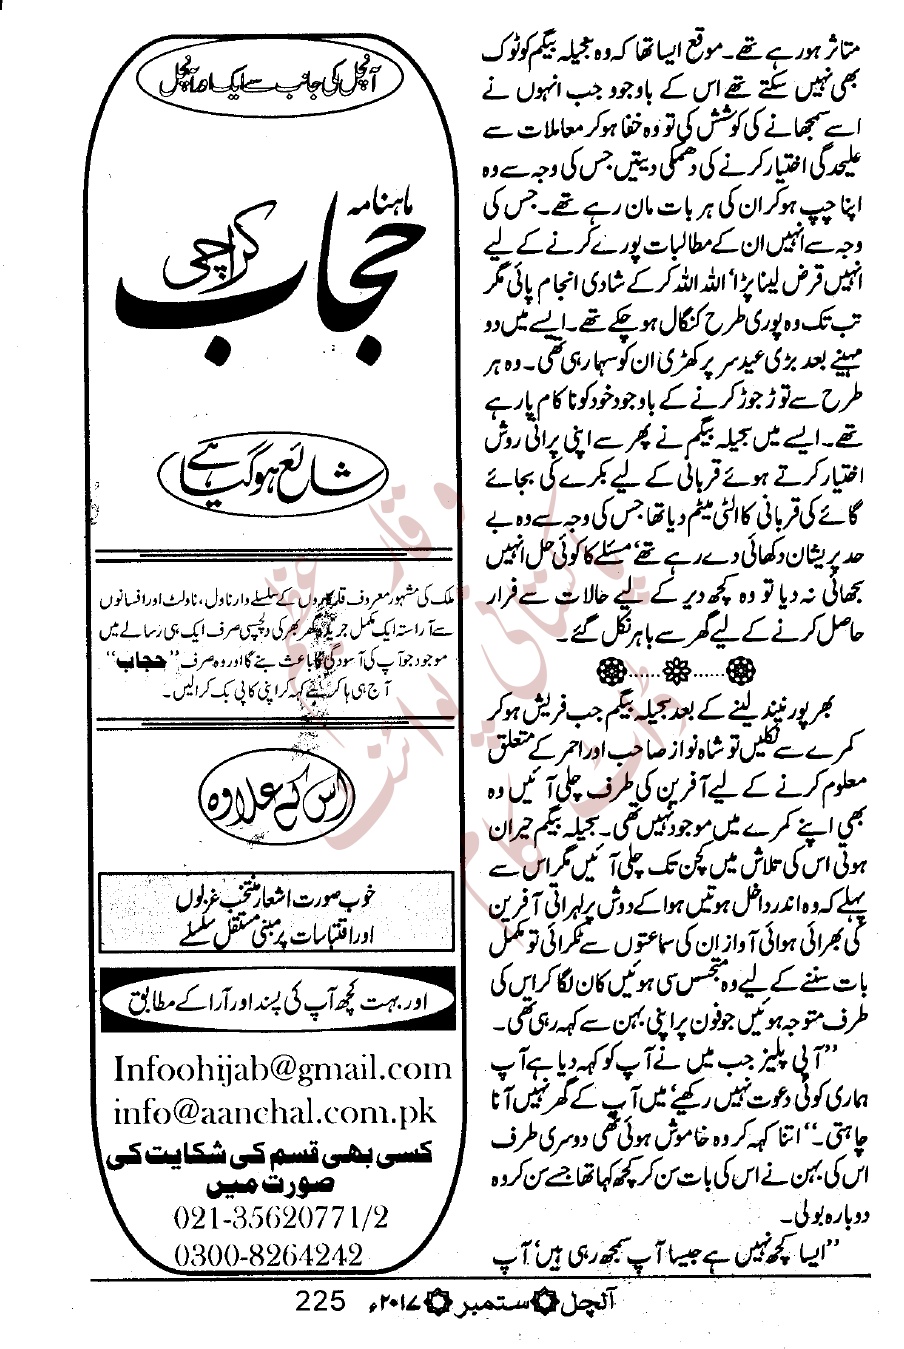 متاثر ہورہے تھے۔ موقع ایسا تھا کہ وہ بجیلہ بیگم کو ٹوک
بھی نہیں سکتے تھے اس کے باوجود جب انہوں نے
اسے سمجھانے کی کوشش کی تو وہ خفا ہوکر معاملات سے
علیحدگی اختیار کرنے کی دھمکی دیتیں جس کی وجہ سے وہ
اپنا چپ ہوکر ان کی ہر بات مان رہے تھے۔ جس کی
وجہ سے انہیں ان کے مطالبات پورے کرنے کے لیے
انہیں قرض لینا پڑا، اللہ اللہ کرکے شادی انجام پائی مگر
تب تک وہ پوری طرح کنگال ہوچکے تھے۔ ایسے میں دو
مہینے بعد بڑی عید سر پر کھڑی ان کو سہارہی تھی۔ وہ ہر
طرح سے توڑ جوڑ کرنے کے باوجود خود کو ناکام پارہے
تھے۔ ایسے میں بجیلہ بیگم نے پھر سے اپنی پرانی روش
اختیار کرتے ہوئے قربانی کے لیے بکرے کی بجائے
گائے کی قربانی کا الٹی میٹم دیا تھا جس کی وجہ سے وہ بے
حد پریشان دکھائی دے رہے تھے، مسئلے کا کوئی حل انہیں
سجھائی نہ دیا تو وہ کچھ دیر کے لیے حالات سے فرار
حاصل کرنے کے لیے گھر سے باہر نکل گئے۔
بھرپور نیند لینے کے بعد بجیلہ بیگم جب فریش ہوکر
کمرے سے نکلیں تو شاہ نواز صاحب اور احمر کے متعلق
معلوم کرنے کے لیے آفرین کی طرف چلی آئیں وہ
بھی اپنے کمرے میں موجود نہیں تھی۔ بجیلہ بیگم حیران
ہوئی اس کی تلاش میں کچن تک چلی آئیں مگر اس سے
پہلے کہ وہ اندر داخل ہوتیں ہوا کے دوش پر لہراتی آفرین
کی بھرائی ہوئی آواز ان کی سماعتوں سے ٹکرائی تو مکمل
بات سننے کے لیے وہ متجسس سی ہوئیں کان لگا کر اس کی
طرف متوجہ ہوئیں جو فون پر اپنی بہن سے کہہ رہی تھی۔
”آپی پلیز جب میں نے آپ کو کہہ دیا ہے آپ
ہماری کوئی دعوت نہیں رکھیے، میں آپ کے گھر نہیں آنا
چاہتی۔“ اتنا کہہ کر وہ خاموش ہوئی تھی دوسری طرف
اس کی بہن نے اس کی بات سن کر کچھ کہا تھا جسے سن کر وہ
دوبارہ بولی۔
”ایسا کچھ نہیں ہے جیسا آپ سمجھ رہی ہیں، آپ
آنچل کی جانب سے ایک اور آنچل
ماہنامہ
حجاب کراچی
شائع ہوگیا ہے
ملک کی مشہور معروف قلمکاروں کے سلسلے وار ناول، ناولٹ اور افسانوں
سے آراستہ ایک مکمل جریدہ گھر بھر کی دلچسپی صرف ایک ہی رسالے میں
موجود جو آپ کی آسودگی کا باعث بنے گا اور وہ صرف ”حجاب“
آج ہی ہاکر سے کہہ کر اپنی کاپی بک کرالیں۔
اس کے علاوہ
خوب صورت اشعار منتخب غزلوں
اور اقتباسات پر مبنی مستقل سلسلے
اور بہت کچھ آپ کی پسند اور آرا کے مطابق
Infoohijab@gmail.com
info@aanchal.com.pk
کسی بھی قسم کی شکایت کی
صورت میں
021-35620771/2
0300-8264242
آنچل ستمبر ۲۰۱۷ء 225